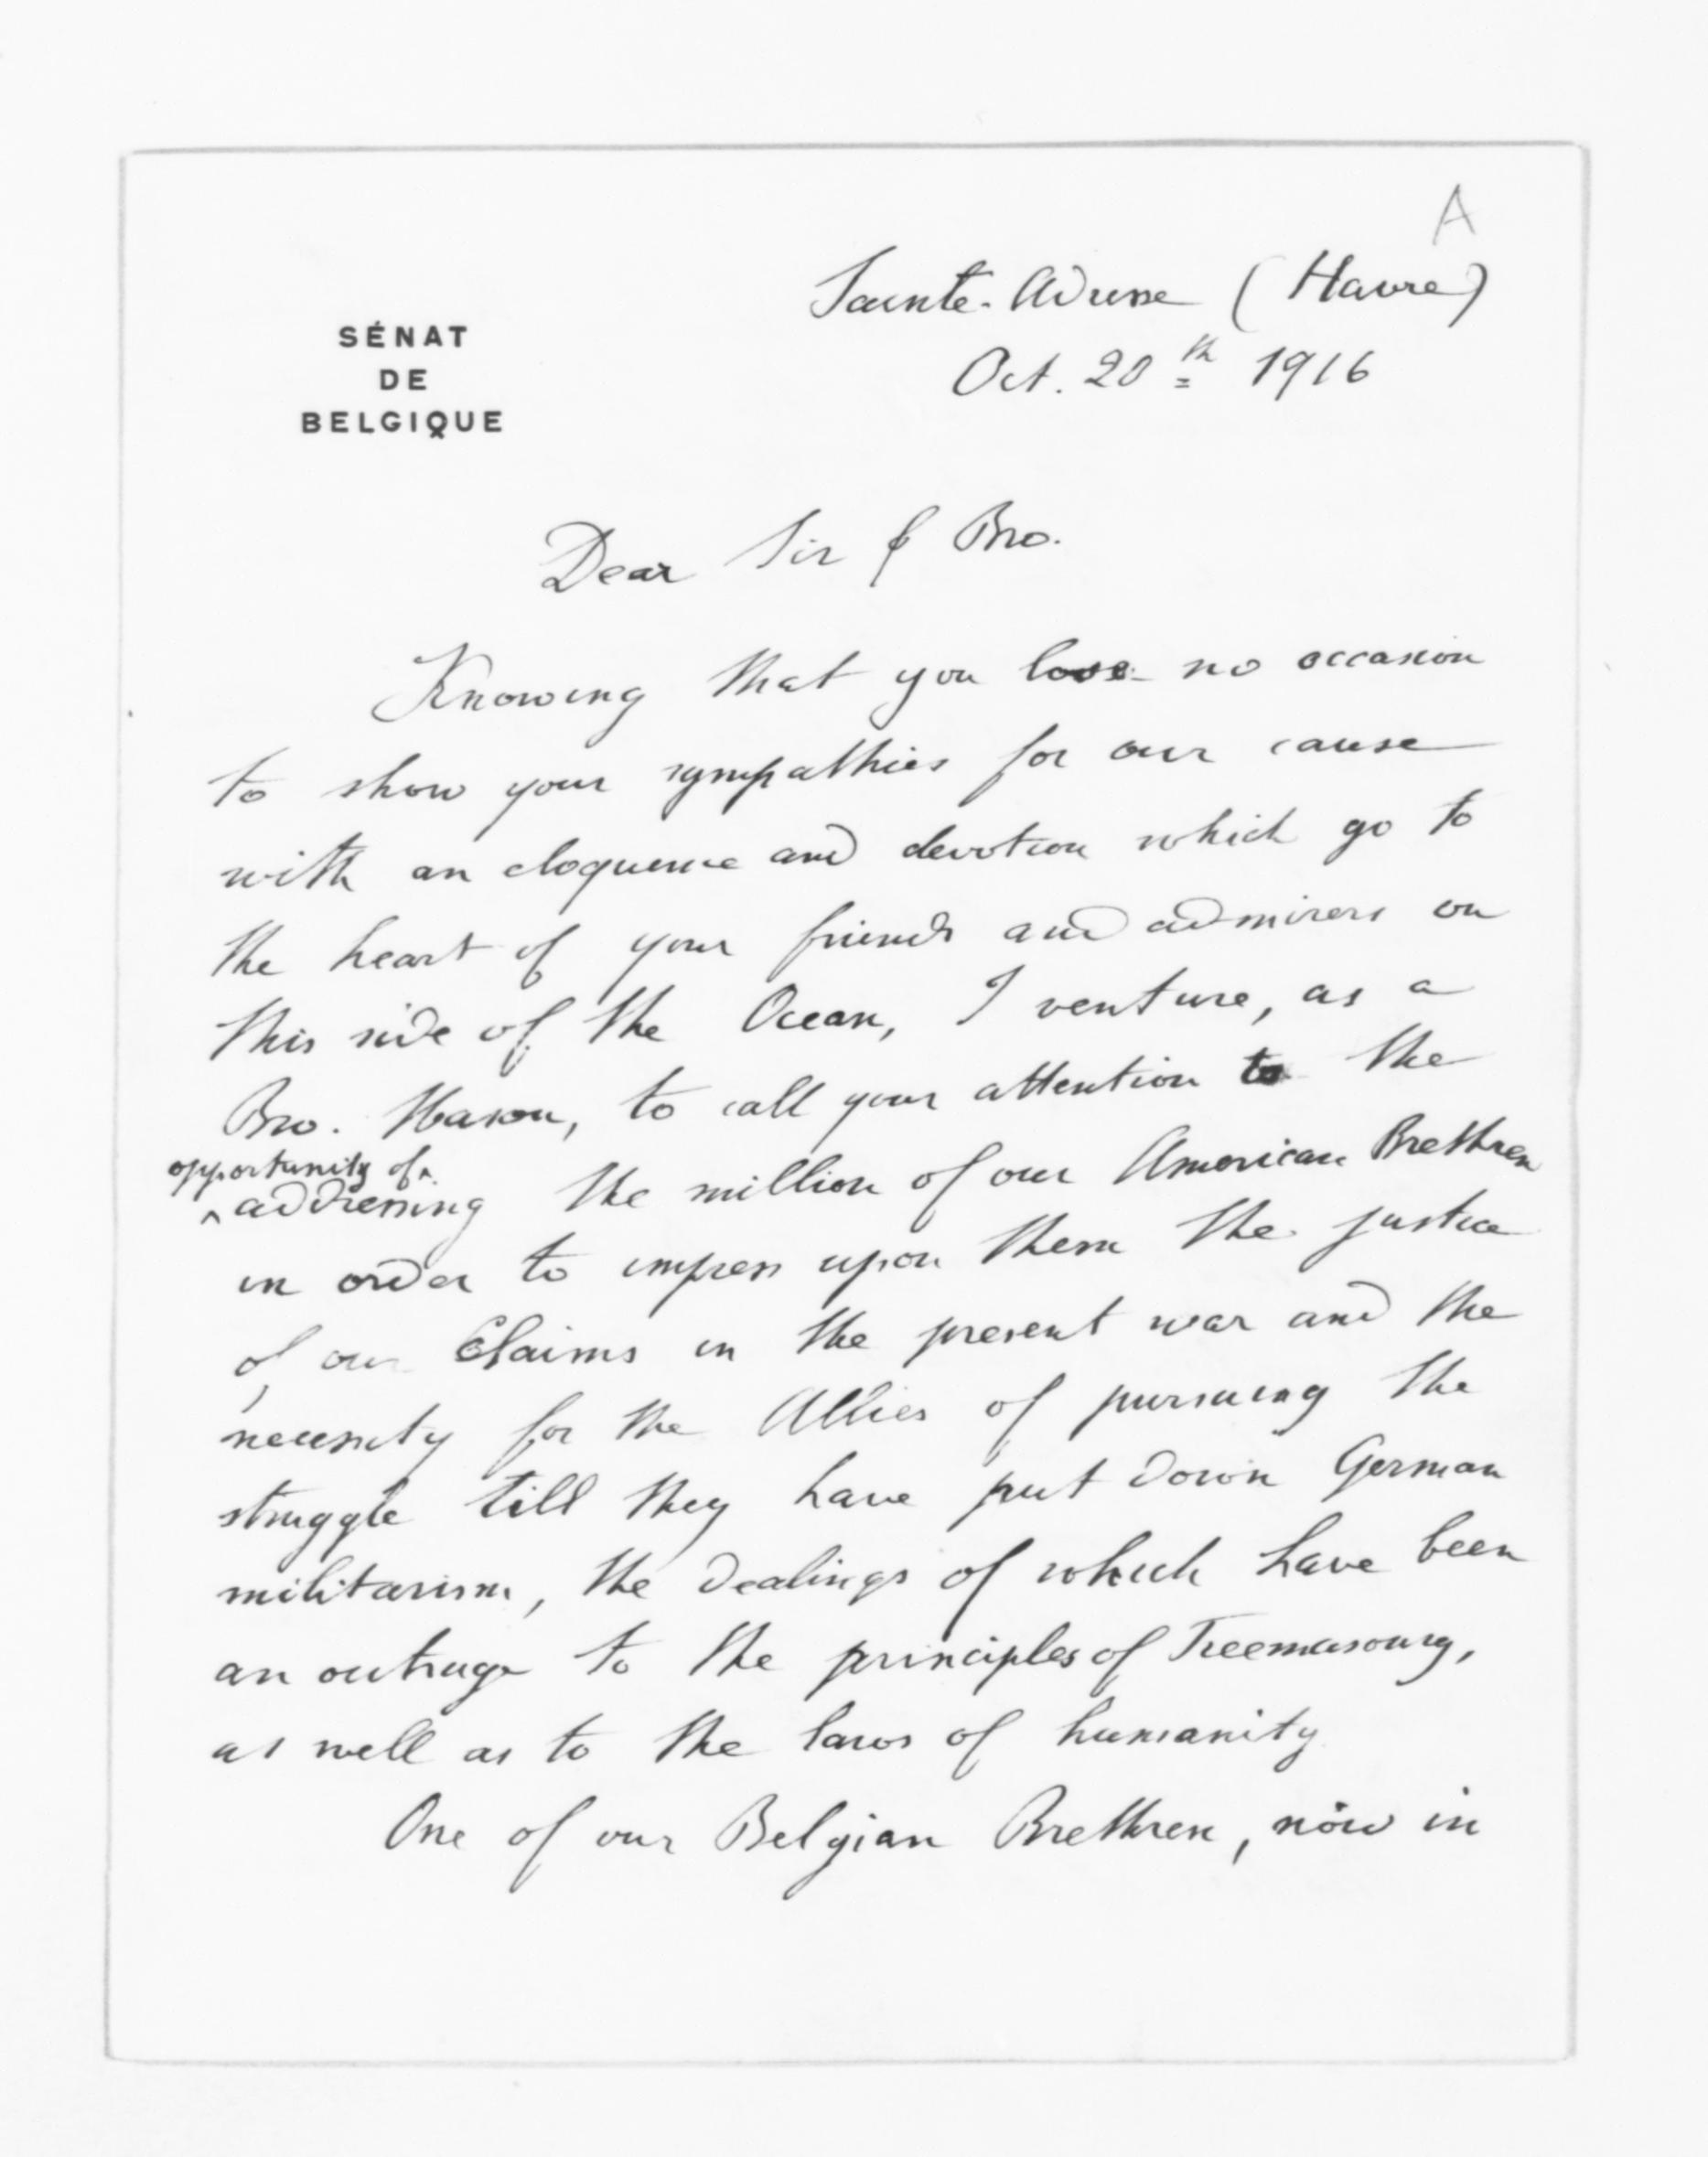 A
Sainte-Adresse (Havre)
Oct. 20th 1916
SÉNAT
DE
BELGIQUE
Dear Sir & Bro.
Knowing that you lose no occasion
to show your sympathies for our cause
with an eloquence and devotion which go to
the heart of your friends and admirers on
this side of the Ocean, I venture, as a
Bro. Mason, to call your attention to the
opportunity of
^ addressing the million of our American Brethren
in order to impress upon them the justice
of our Claims in the present war and the
necessity for the Allies of pursuing the
struggle till they have put down German
militarism, the dealings of which have been
an outrage to the principles of Freemasonry,
as well as to the laws of humanity
One of our Belgian Brethren, now in